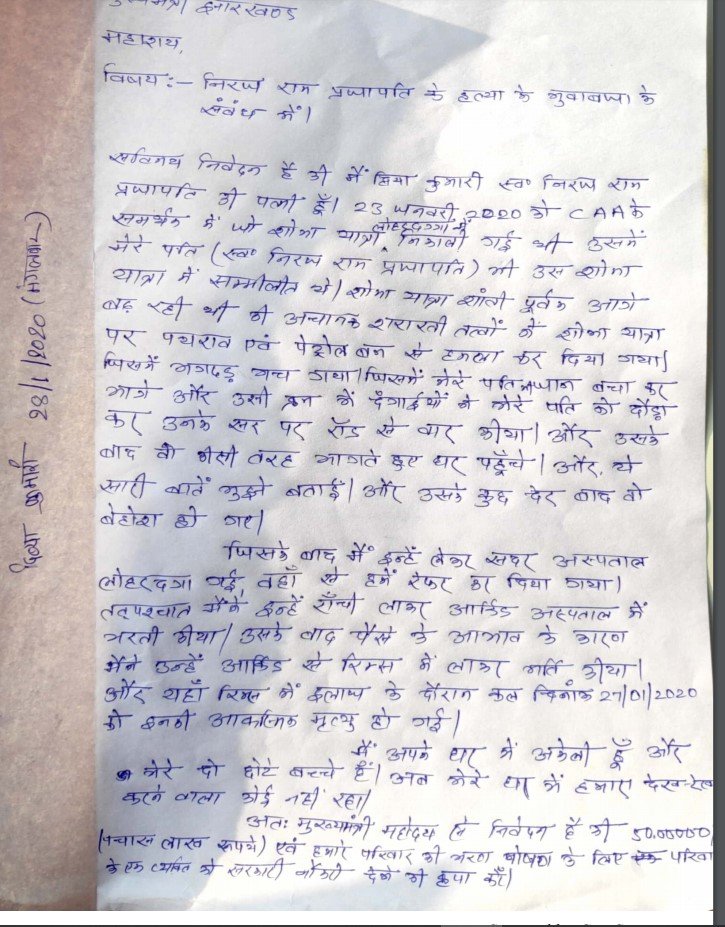 मुख्यमंत्री झारखण्ड
महाशय,
विषय:- निरज राम प्रजापति के हत्या के मुवाबजा के
संबंध में।
सविनय निवेदन है की मैं दिव्या कुमारी स्व० निरज राम
प्रजापति की पत्नी हूँ। 23 जनवरी 2020 को CAA के
समर्थन में जो शोभा यात्रा लोहरदगा में निकाली गई थी उसमें
मेरे पति (स्व० निरज राम प्रजापति) भी उस शोभा
यात्रा में सम्मीलीत थे। शोभा यात्रा शांती पूर्वक आगे
बढ़ रही थी की अचानक शरारती तत्वों ने शोभा यात्रा
पर पथराव एवं पेट्रोल बम से हमला कर दिया गया।
जिसमें भगदड़ मच गया। जिसमें मेरे पति जान बचा कर
भागे और उसी क्रम में दंगाईयों ने मेरे पति को दौड़ा
कर उनके सर पर रॉड से वार कीया। और उसके
बाद वो कीसी तरह भागते हुए घर पहुँचे। और, ये
सारी बातें मुझे बताई। और उसके कुछ देर बाद वो
बेहोश हो गए।
जिसके बाद मैं इन्हें लेकर सदर अस्पताल
लोहरदगा गई वहाँ से हमें रेफर कर दिया गया।
तत्पश्चात मैंने इन्हें राँची लाकर आर्किड अस्पताल में
भरती कीया। उसके बाद पैसे के आभाव के कारण
मैंने उन्हें आर्किड से रिम्स में लाकर भर्ति कीया।
और यहाँ रिम्स में इलाज के दौरान कल दिनांक 27/01/2020
को इनकी आकस्मिक मृत्यु हो गई।
मैं अपने घर में अकेली हूँ और
मेरे दो छोटे बच्चे हैं। अब मेरे घर में हमारा देख-रेख
करने वाला कोई नहीं रहा।
अतः मुख्यमंत्री महोदय से निवेदन है की 50,00000/
(पचास लाख रूपये) एवं हमारे परिवार की भरण पोषण के लिए परिवा
के एक व्यक्ति को सरकारी नौकरी देने की कृपा करें।
दिव्या कुमारी 28/1/2020 (मंगलवार)